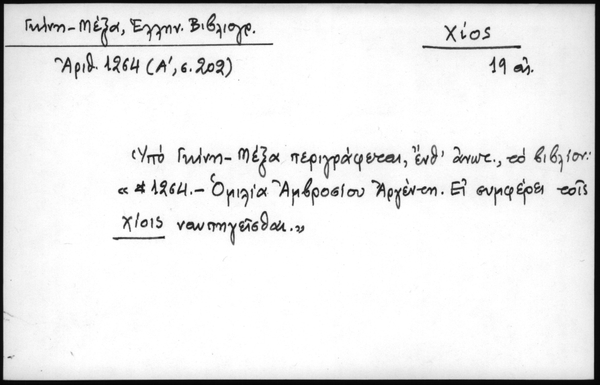 Γκίνη-Μέξα, Ἑλλην. Βιβλιογρ.
Χίος
Ἀριθ. 1264 (Α', σ. 202)
19 αἰ.
Ὑπό Γκίνη-Μέξα περιγράφεται, ἔνθ' ἄνωτ., τό βιβλίον:
« * 1264.- Ὁμιλία Ἀμβροσίου Ἀργέντη. Εἰ συμφέρει τοῖς
Χίοις ναυπηγεῖσθαι.»